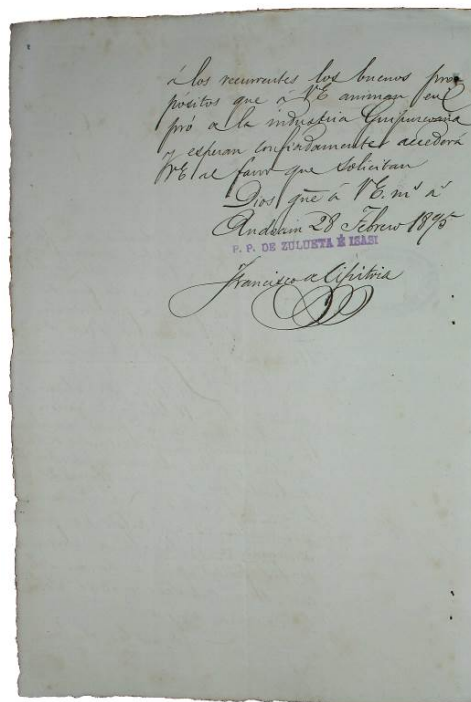 á los recurrentes los buenos pro
pósitos que á VE animan en
pró a la industria Guipuzcoana
y esperan confiadamente accederá
VE al favor que solicitan
Dios gue á VE. ms as
Andoain 28 Febrero 1895
P. P. DE ZULUETA É ISASI
Francisco de Cipitria